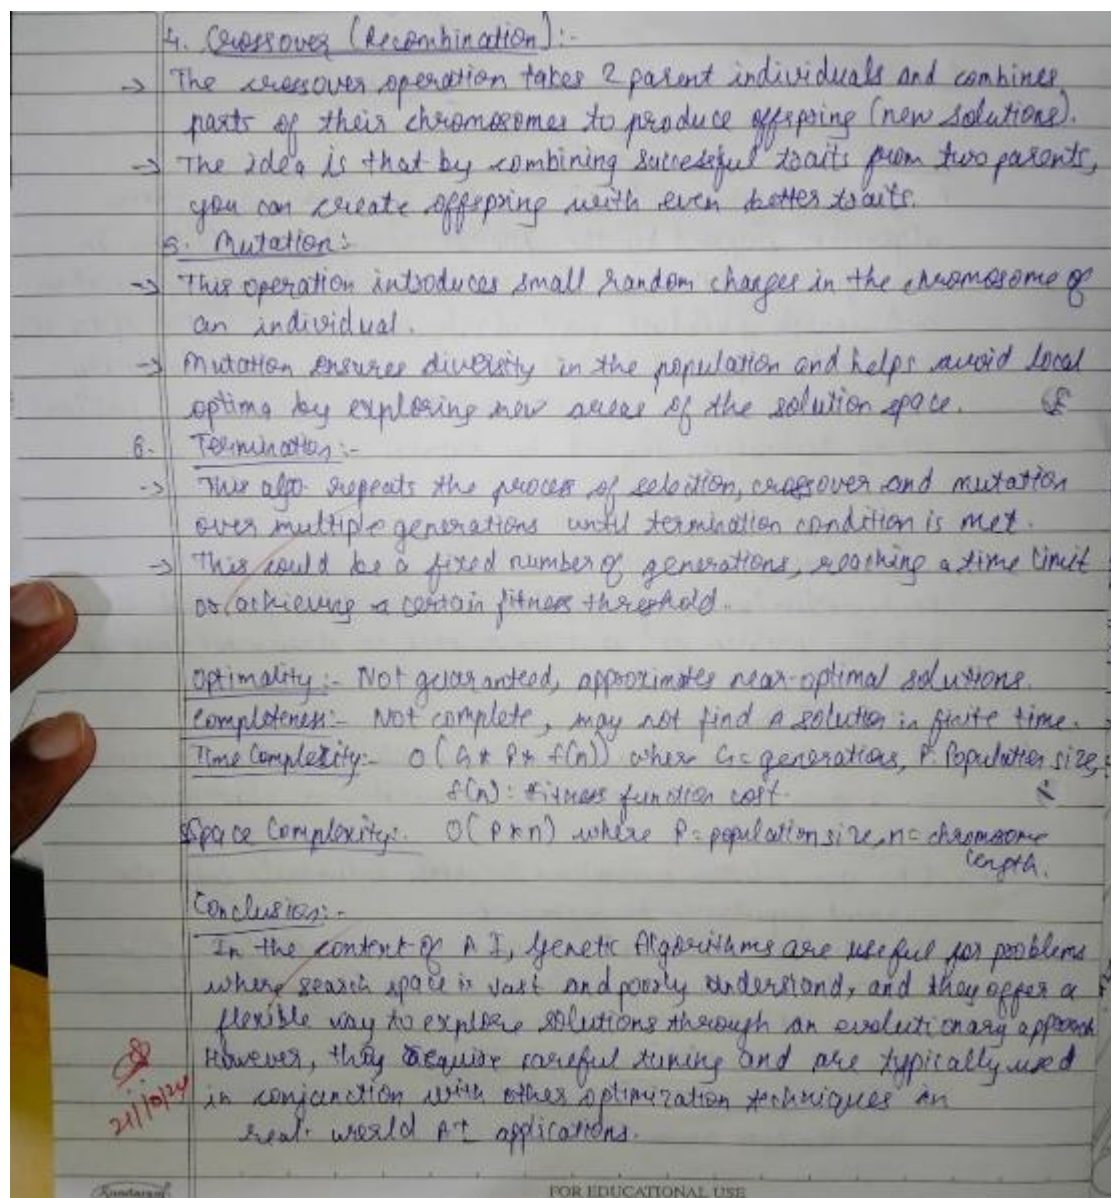 4. Crossover (Recombination):-
→ The crossover operation takes 2 parent individuals and combines
parts of their chromosomes to produce offspring (new solutions).
→ The idea is that by combining successful traits from two parents,
you can create offspring with even better traits.
5. Mutation:-
→ This operation introduces small random changes in the chromosome of
an individual.
→ Mutation ensures diversity in the population and helps avoid local
optima by exploring new areas of the solution space.
6. Termination:-
→ This algo repeats the process of selection, crossover and mutation
over multiple generations until termination condition is met.
→ This could be a fixed number of generations, reaching a time limit
or achieving a certain fitness threshold.
Optimality:- Not guaranteed, approximates near-optimal solutions.
Completeness:- Not complete, may not find a solution in finite time.
Time Complexity:- O(G* P* f(n)) where G= generations, P: Population size,
f(n): fitness function cost.
Space Complexity:- O(P*n) where P= population size, n= chromosome
length.
Conclusion:-
In the content of A I, Genetic Algorithms are useful for problems
where search space is vast and poorly understand, and they offer a
flexible way to explore solutions through an evolutionary approach
However, they require careful tuning and are typically used
in conjunction with other optimization techniques in
real world AI applications.
21/10/24
Sundaram
FOR EDUCATIONAL USE